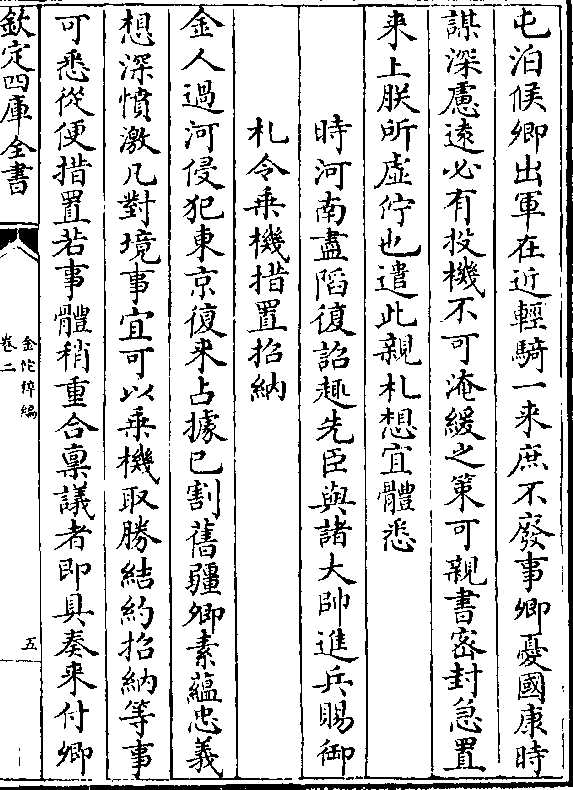 屯泊候卿出軍在近輕騎一来庶不廢事卿憂國康時
謀深慮遠必有投機不可淹緩之策可親書密封急置
来上朕所虚佇也遣此親札想宜體悉
時河南盡陷復詔趣先臣與諸大帥進兵賜御
札令乗機措置招納
金人過河侵犯東京復来占據已割舊疆卿素藴忠義
想深憤激凡對境事宜可以乗機取勝結約招納等事
可悉從便措置若事體稍重合禀議者即具奏来付卿
欽定四庫全書
金佗稡編
卷二
五